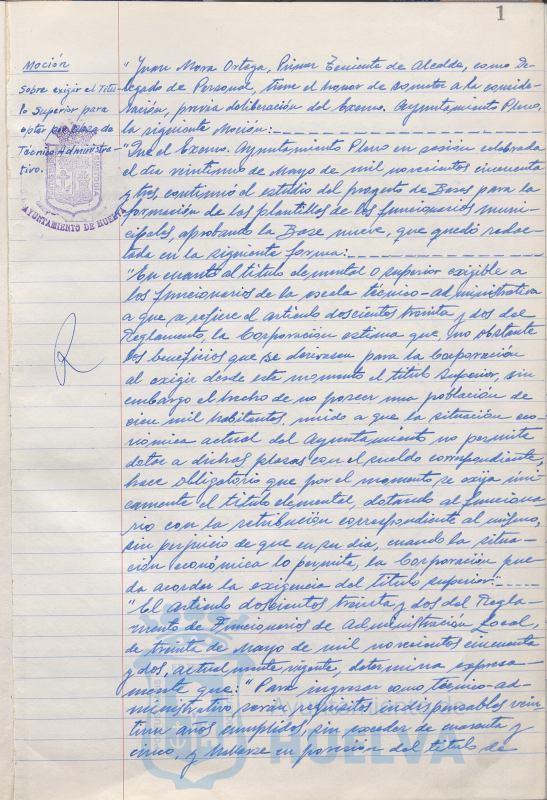 1
Moción
Sobre exigir el Titu-
lo Superior para
optar por plaza de
Técnico Administra-
tivo.
AYUNTAMIENTO DE HUELVA
"Juan Mora Ortega, Primer Teniente de Alcalde, como De-
legado de Personal, tiene el honor de someter a la conside-
ración, previa deliberación del Excmo. Ayuntamiento Pleno,
la siguiente Moción:
"Que el Excmo. Ayuntamiento Pleno en sesión celebrada
el dia veintiuno de Mayo de mil novecientos cincuenta
y tres, continuó el estudio del proyecto de Bases para la
formación de las plantillas de los funcionarios muni-
cipales, aprobando la Base nueve, que quedó redac-
tada en la siguiente forma:
"En cuanto al titulo elemental o superior exigible a
los funcionarios de la escala técnico-administrativa
a que se refiere el articulo doscientos treinta y dos del
Reglamento, la Corporación estima que, no obstante
los beneficios que se derivasen para la Corporación
al exigir desde este momento el titulo superior, sin
embargo el hecho de no poseer una población de
cien mil habitantes, unido a que la situación eco-
nómica actual del Ayuntamiento no permite
dotar a dichas plazas con el sueldo correspondiente,
hace obligatorio que por el momento se exija úni-
camente el titulo elemental, dotando al funciona-
rio con la retribución correspondiente al mismo,
sin perjuicio de que en su dia, cuando la situa-
ción económica lo permita, la Corporación pue-
da acordar la exigencia del titulo superior".
"El articulo doscientos treinta y dos del Regla-
mento de Funcionarios de Administración Local,
de treinta de Mayo de mil novecientos cincuenta
y dos, actualmente vigente, determina expresa-
mente que: "Para ingresar como técnico-ad-
ministrativo serán requisitos indispensables vein-
tiun años cumplidos, sin exceder de cuarenta y
cinco, y hallarse en posesión del titulo de
HUELVA